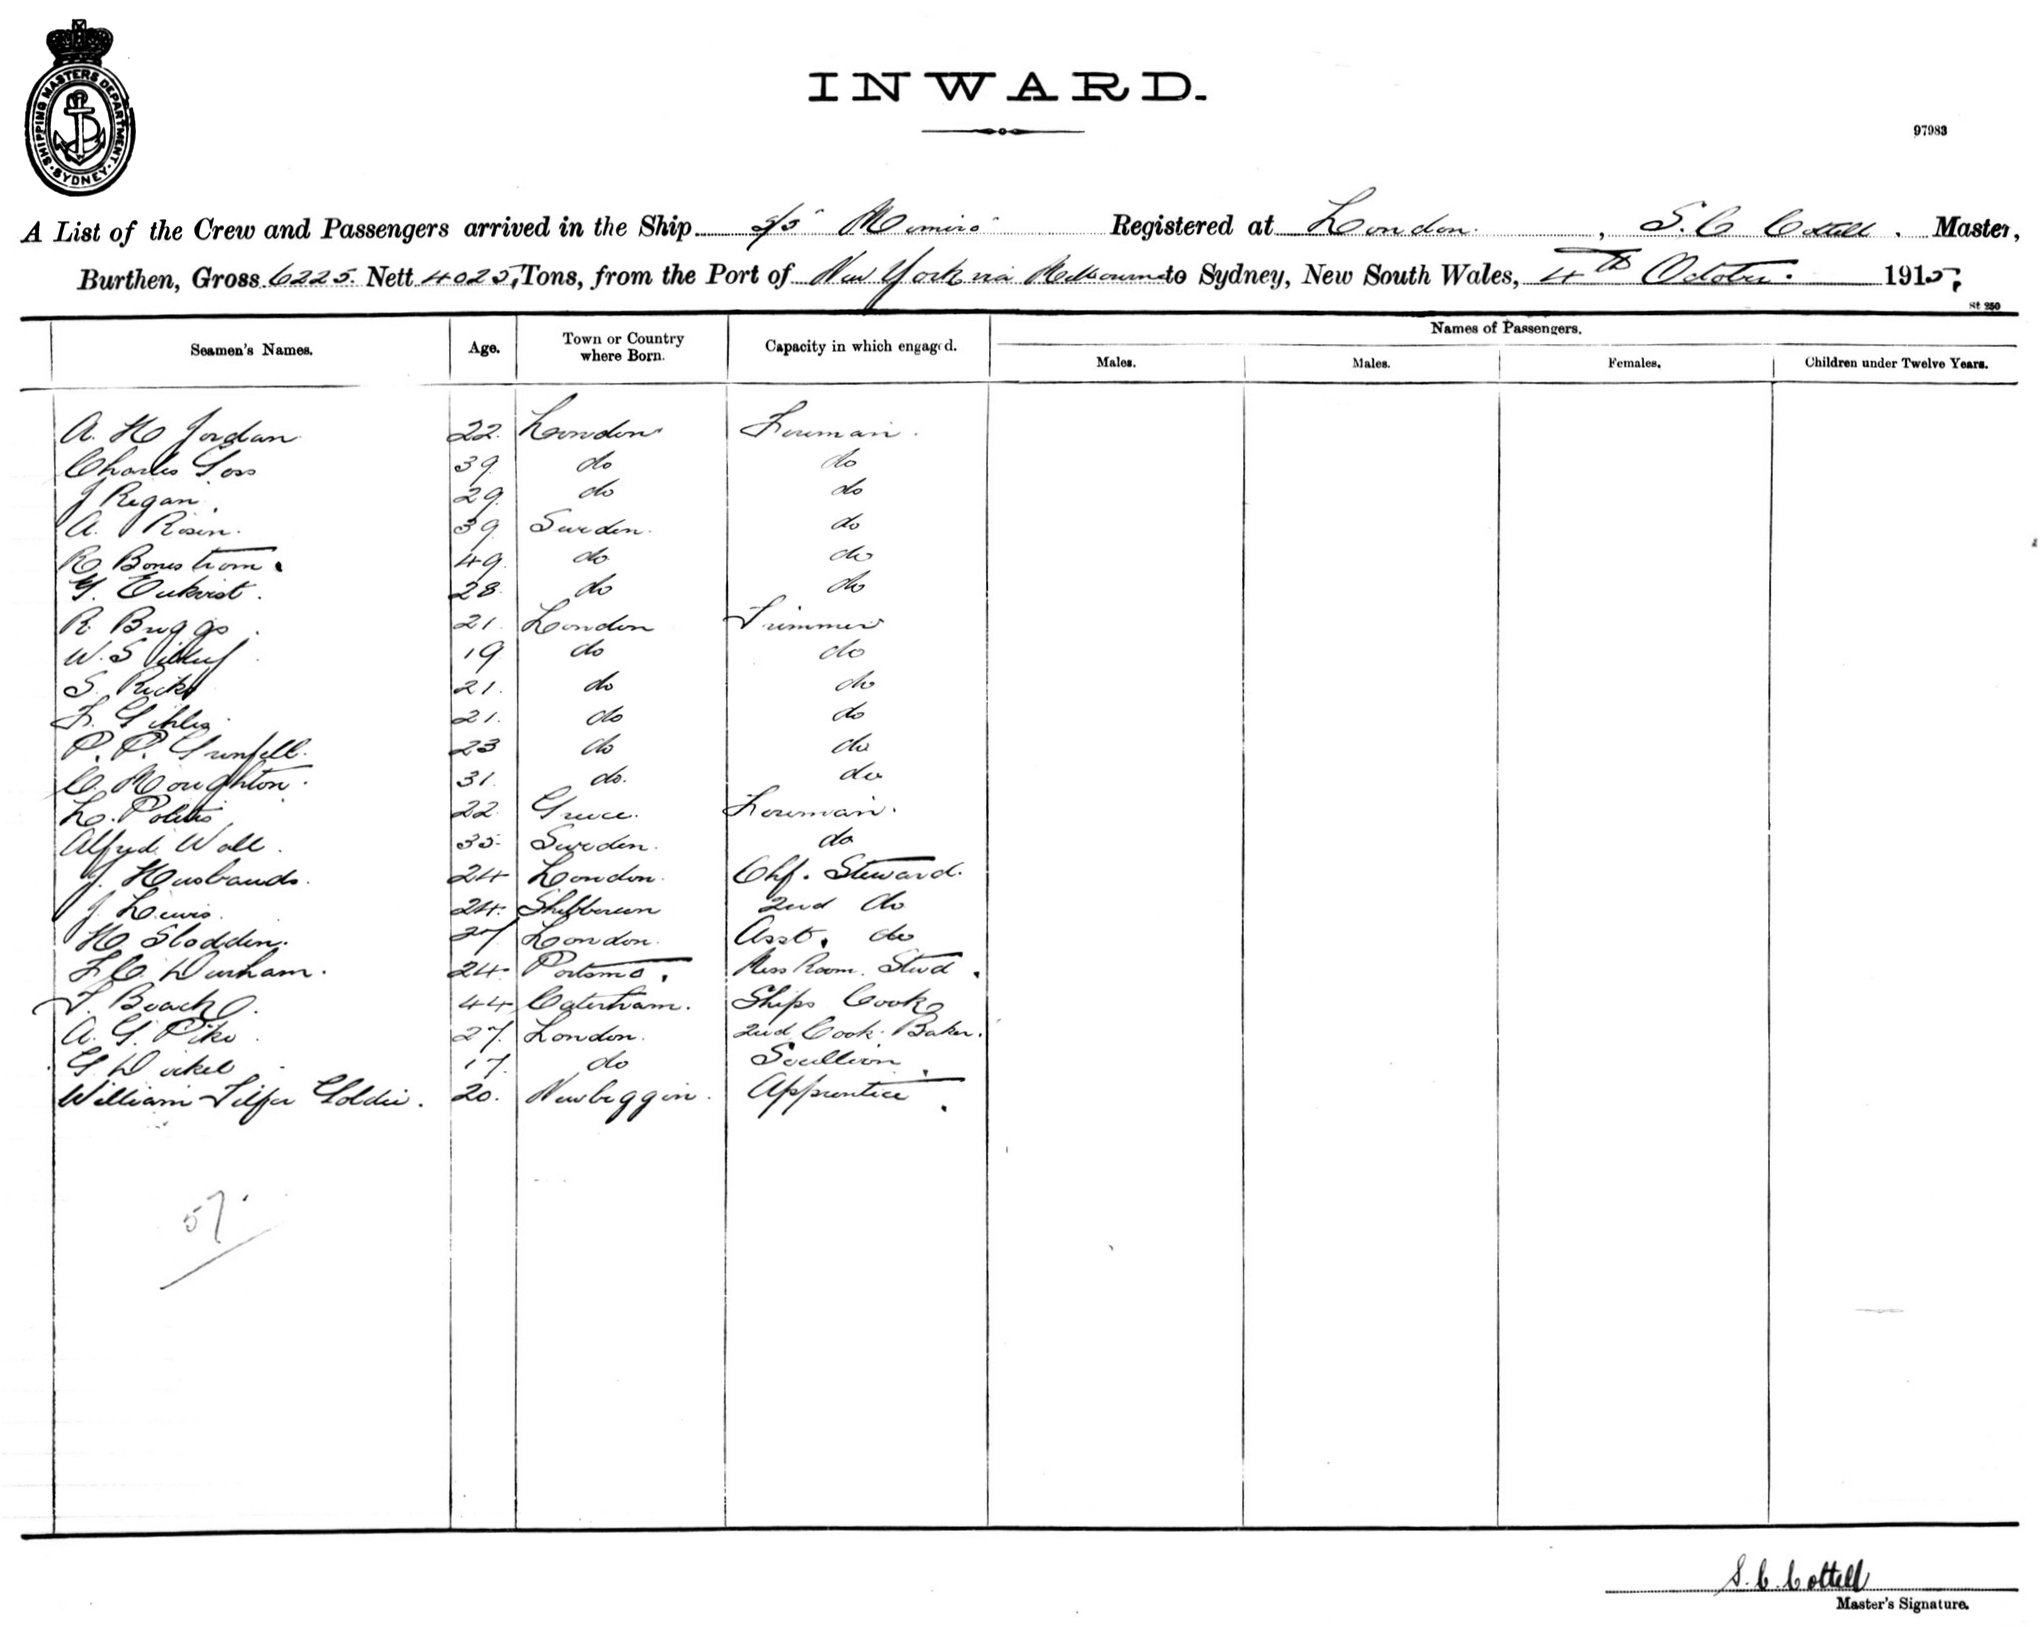 SHIPPING MASTERS DEPARTMENT
SYDNEY
INWARD.
97983
A List of the Crew and Passengers arrived in the Ship s/s " Mimiro " Registered at London. , S. C Cottell . Master,
Burthen, Gross 6225. Nett 4025, Tons, from the Port of New York via Melbourne to Sydney, New South Wales, 4th October. 1915,
St 250
Seamen's Names. Age. Town or Country where Born. Capacity in which engaged. Names of Passengers.
Males. Males. Females. Children under Twelve Years.
A. H Jordan 22. London Fireman.
Charles Goss 39 do do
J Regan. 29. do do
A. Rosin. 39 Sweden. do
R Bonestrom. 49. do do
28. do do
R Briggs. 21. London Trimmer
W. S 19 do do
S. Ricks 21. do do
F. 21. do do
P. P. Grenfell. 23 do do
C. Houghton. 31. do. do
L. Politis 22. Greece. Fireman.
Alfred Wall. 35. Sweden. do
J. Husbands. 24 London. Chf. Steward.
J. Lewis. 24. Skibbereen 2nd do
H Sladden. 27 London. Asst. do
F. C. Durham. 24. Portsmo. Mess Room. Stwd.
F. Beach. 44 Caterham. Ships Cook
A. G. Pike. 27. London. 2nd Cook. Baker.
G 17. do Scullion.
William Goldie. 20. Newbeggin. Apprentice.
57.
S. C. Cottell
Master's Signature.